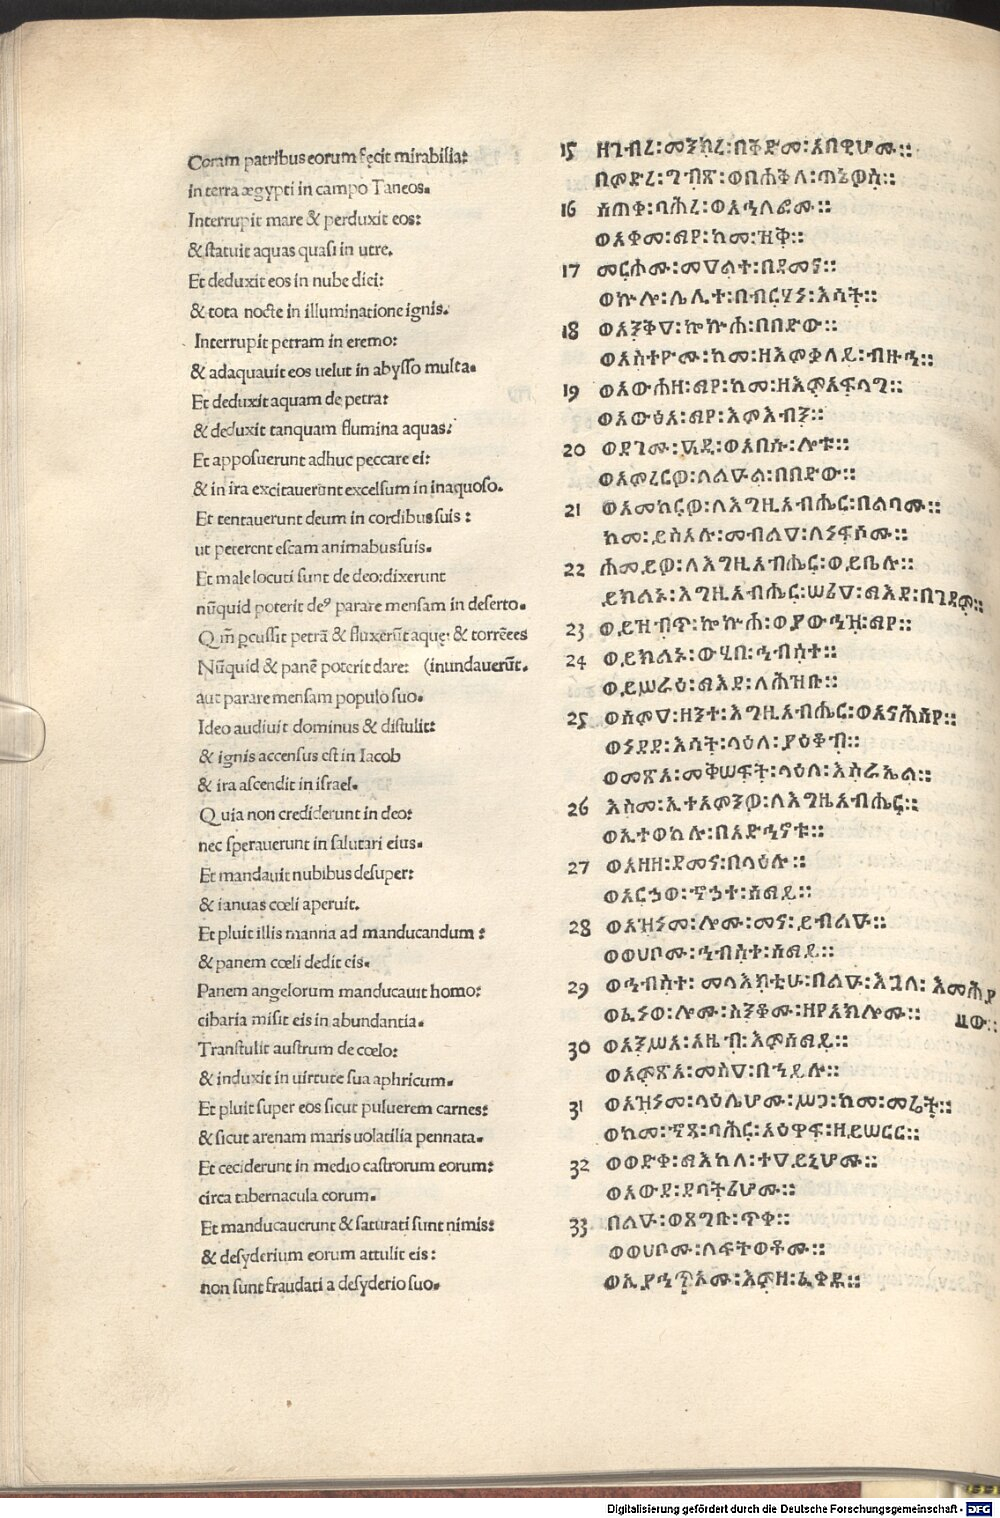 Coram patribus eorum fęcit mirabilia:
in terra ægypti in campo Taneos.
Interrupit mare & perduxit eos:
& statuit aquas quasi in utre.
Et deduxit eos in nube diei:
& tota nocte in illuminatione ignis.
Interrupit petram in eremo:
& adaquauit eos uelut in abysso multa.
Et deduxit aquam de petra:
& deduxit tanquam flumina aquas:
Et apposuerunt adhuc peccare ei:
& in ira excitauerunt excelsum in inaquoso.
Et tentauerunt deum in cordibus suis :
ut peterent escam animabus suis.
Et male locuti sunt de deo:dixerunt
nũquid poterit de⁹ parare mensam in deserto.
Q m̃ p̱cussit petrã & fluxerũt aquę: & torrẽtes
Nũquid & panẽ poterit dare: (inundauerũt.
aut parare mensam populo suo.
Ideo audiuit dominus & distulit:
& ignis accensus est in Iacob
& ira ascendit in israel.
Quia non crediderunt in deo:
nec sperauerunt in salutari eius.
Et mandauit nubibus desuper:
& ianuas cœli aperuit.
Et pluit illis manna ad manducandum :
& panem cœli dedit eis.
Panem angelorum manducauit homo:
cibaria misit eis in abundantia.
Transtulit austrum de cœlo:
& induxit in uirtute sua aphricum.
Et pluit super eos sicut puluerem carnes:
& sicut arenam maris uolatilia pennata.
Et ceciderunt in medio castrorum eorum:
circa tabernacula eorum.
Et manducauerunt & saturati sunt nimis:
& desyderium eorum attulit eis:
non sunt fraudati a desyderio suo.
15 ዘገብረ፡መንክረ፡በቅድመ፡አበዊሆሙ፡፡
በምድረ፡ግብጽ፡ወበሐቅለ፡ጣኔዎስ፡፡
16 ሰጠቀ፡ባሕረ፡ወአኅለፎሙ፡፡
ወአቀመ፡ማየ፡ከመ፡ዝቅ፡፡
17 መርሖሙ፡መዐልተ፡በደመና፡፡
ወኵሎ፡ሌሊተ፡በብርሃነ፡እሳት፡፡
18 ወአንቅዐ፡ኰኵሐ፡በበድው፡፡
ወአስተዮሙ፡ከመ፡ዘእምቀላይ፡ብዙኅ፡፡
19 ወአውሐዘ፡ማየ፡ከመ፡ዘእምአፍላግ፡፡
ወአውፅአ፡ማየ፡እምእብን፡፡
20 ወደገሙ፡ዓዲ፡ወአበሱ፡ሎቱ፡፡
ወአምረርዎ፡ለልዑል፡በበድው፡፡
21 ወአመከርዎ፡ለእግዚአብሔር፡በልባሙ፡፡
ከመ፡ይስአሉ፡መብልዐ፡ለነፍሶሙ፡፡
22 ሐመይዎ፡ለእግዚአብሔር፡ወይቤሉ፡፡
ይክልኑ፡እግዚአብሔር፡ሠሪዐ፡ማእደ፡በገዳም፡፡
23 ወይዝብጥ፡ኰኵሐ፡ወያውኅዝ፡ማየ፡፡
24 ወይክልኑ፡ውሂበ፡ኅብስተ፡፡
ወይሠራዕ፡ማእደ፡ለሕዝቡ፡፡
25 ወሰምዐ፡ዘንተ፡እግዚአብሔር፡ወአናሕሰየ፡፡
ወነደደ፡እሳት፡ላዕለ፡ያዕቆብ፡፡
ወመጽአ፡መቅሠፍት፡ላዕለ፡እስራኤል፡፡
26 እስመ፡ኢተአምንዎ፡ለእግዚአብሔር፡፡
ወኢተወከሉ፡በአድኅኖቱ፡፡
27 ወአዘዘ፡ደመና፡በላዕሉ፡፡
ወአርኃወ፡ኆኃተ፡ሰማይ፡፡
28 ወአዝነመ፡ሎሙ፡መና፡ይብልዑ፡፡
ወወሀቦሙ፡ኅብስተ፡ሰማይ፡፡
29 ወኅብስተ፡መላእክቲሁ፡በልዑ፡እጓለ፡እመሕያ
ው፡፡
ወፈነወ፡ሎሙ፡ስንቆሙ፡ዘየአክሎሙ፡፡
30 ወአንሥአ፡አዜብ፡እምሰማይ፡፡
ወአምጽአ፡መስዐ፡በኀይሉ፡፡
31 ወአዝነመ፡ላዕሌሆሙ፡ሥጋ፡ከመ፡መሬት፡፡
ወከመ፡ኆጻ፡ባሕር፡አዕዋፍ፡ዘይሠርር፡፡
32 ወወድቀ፡ማእከለ፡ተዐይኒሆሙ፡፡
ወአውደ፡ደባትሪሆሙ፡፡
33 በልዑ፡ወጸግቡ፡ጥቀ፡፡
ወወሀቦሙ፡ለፍትወቶሙ፡፡
ወኢያኅጥአሙ፡እምዘ፡ፈቀዱ፡፡
Digitalisierung gefördert durch die Deutsche Forschungsgemeinschaft - DFG